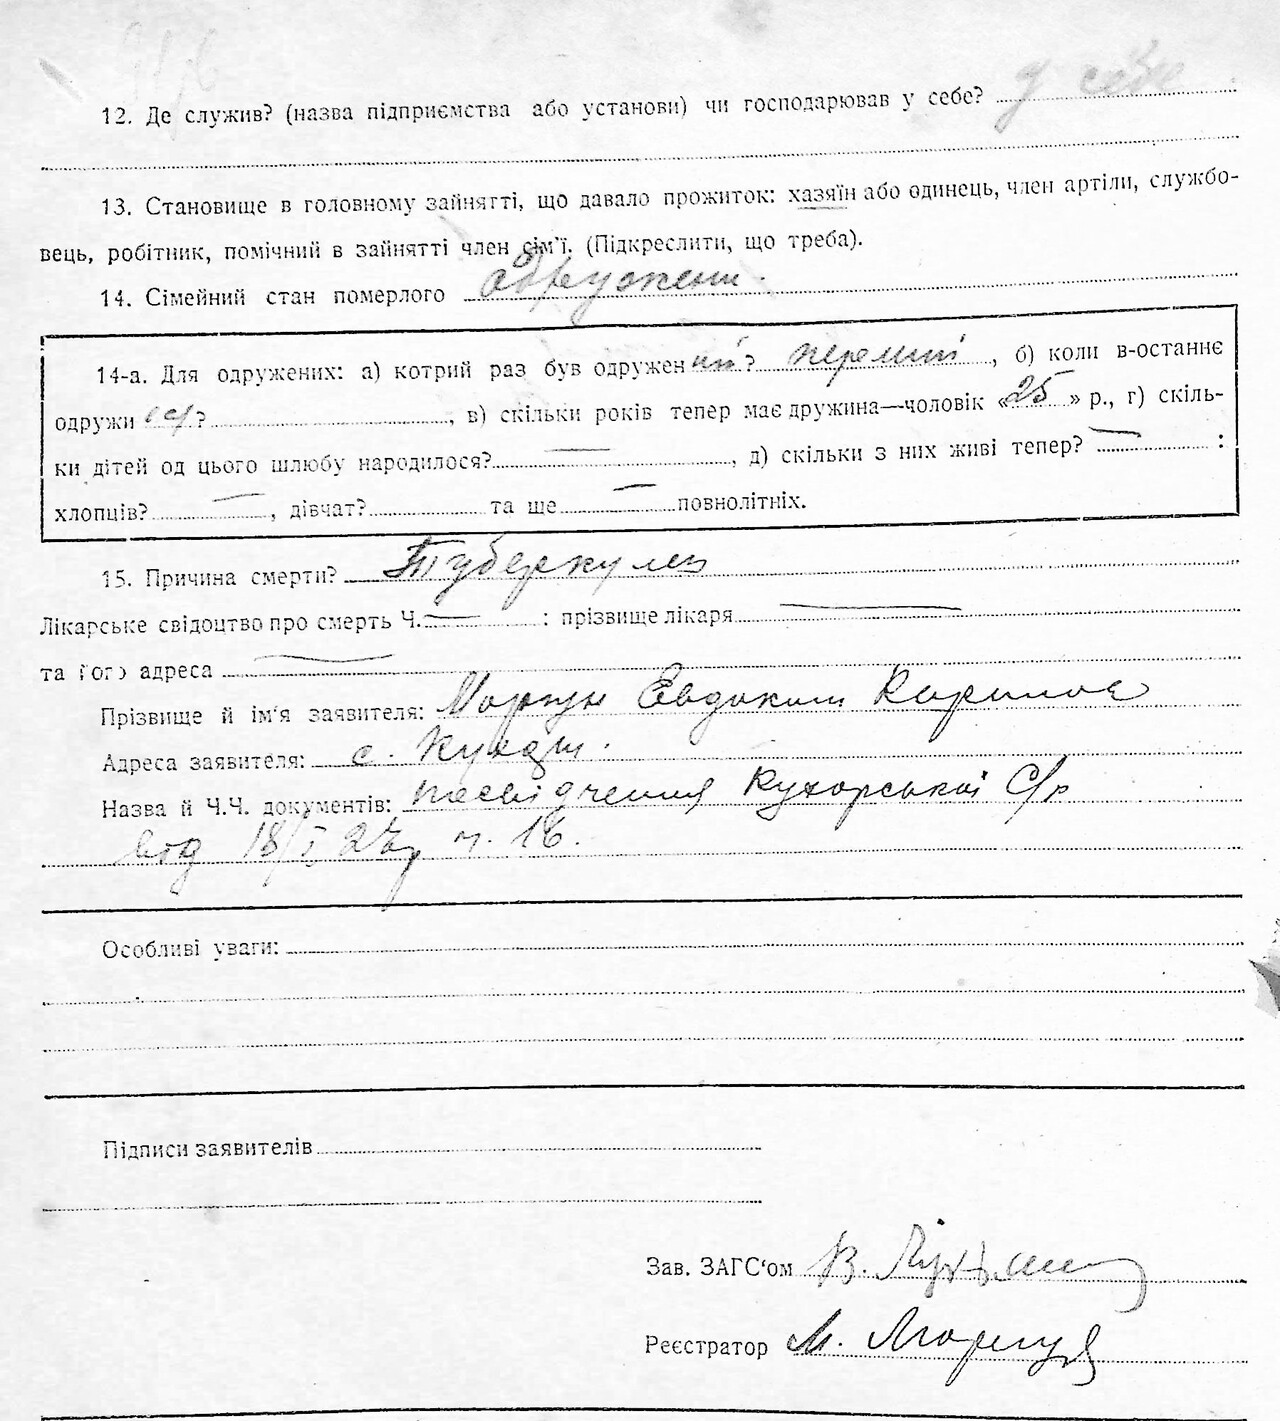 12. Де служив? (назва підприємства або установи) чи господарював у себе? у себе
13. Становище в головному зайнятті, що давало прожиток: хазяїн або одинець, член артіли, службо-
вець, робітник, помічний в зайнятті член сім'ї. (Підкреслити, що треба).
14. Сімейний стан померлого одружени.
14-а. Для одружених: а) котрий раз був одружений? перший, б) коли в-останнє
одружився?, в) скільки років тепер має дружина—чоловік «25» р., г) скіль-
ки дітей од цього шлюбу народилося? —, д) скільки з них живі тепер? — :
хлопців? —, дівчат? та ще — повнолітніх.
15. Причина смерти? Туберкулез
Лікарське свідоцтво про смерть Ч. — : прізвище лікаря —
та його адреса —
Прізвище й ім'я заявителя: Євдоким
Адреса заявителя: с.
Назва й Ч.Ч. документів: посвідчення Кухорської С/р
від 18/I 27р ч. 16.
Особливі уваги:
Підписи заявителів
Зав. ЗАГС'ом В.
Реєстратор М.